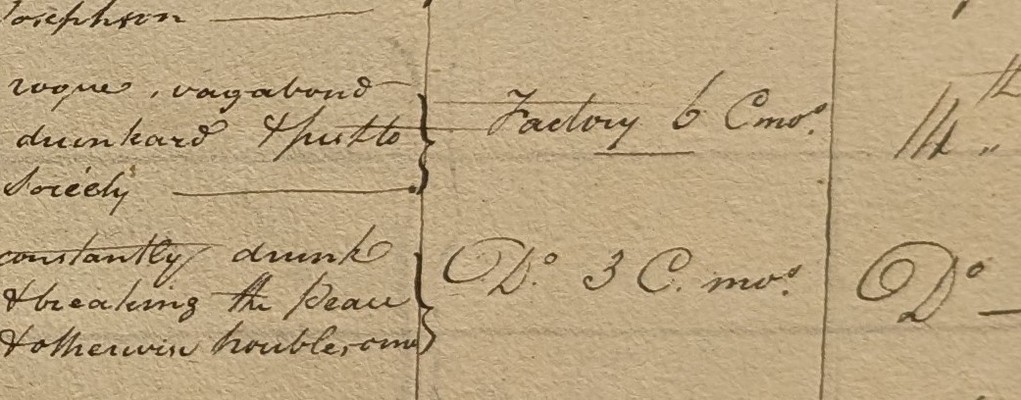 Josephson
rogue, vagabond
drunkard & pest to
Society
Factory 6 C mos.
14th
constantly drunk
& breaking the peace
& otherwise troublesome
Do. 3 C. mos.
Do